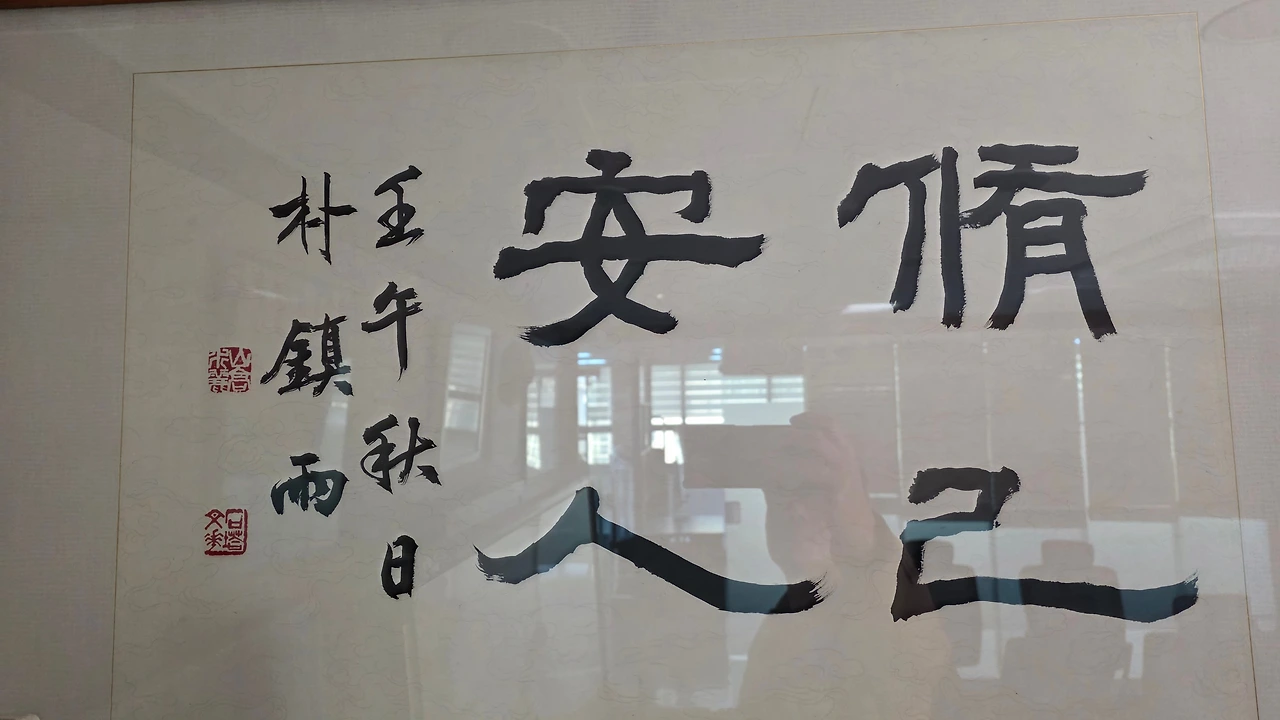 脩己
安人
壬午秋日
朴鎮雨